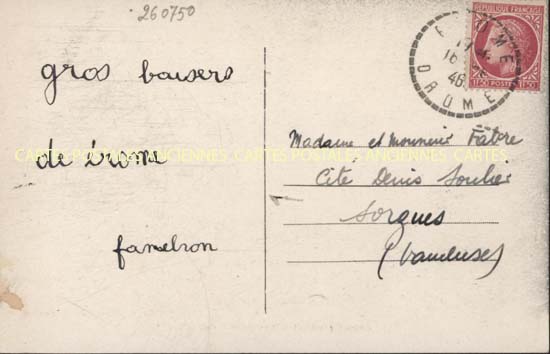 260750
RÉPUBLIQUE FRANÇAISE
1F50 POSTES 1F50
16
46
DROME
gros baisers
de
Madame et Monsieur Fabre
CARTES POSTALES ANCIENNES CARTES POSTALES ANCIENNES CARTES
Cité Denis Soulier
Sorgues
(Vaucluse)